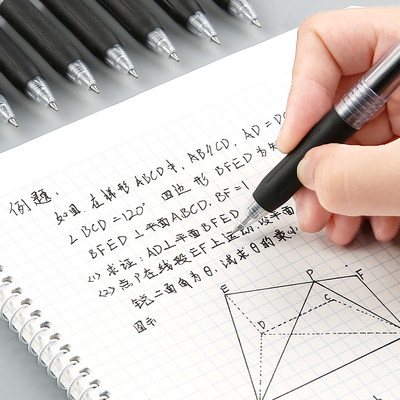 例题:
如图,在梯形ABCD中,AB∥CD,AD=DC
∠BCD=120° 四边形BFED为矩
BFED⊥平面ABCD,BF=1
(1)求证:AD⊥平面BFED
(2)点P在线段EF上运动,设平面
锐二面角为θ,试求θ的最小
图示
E
P
F
D
C